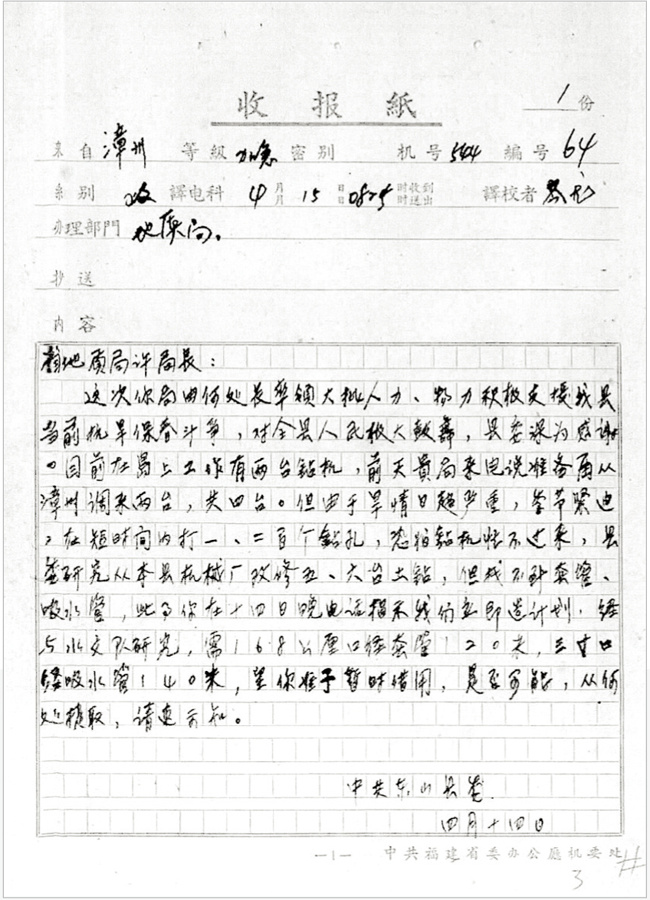 收报紙
1份
来自 漳州 等級 加急 密别 机号 544 編号 64
来别 譯电科 4月 15日 时收到
月 日 时送出 譯校者
办理部門 地质局.
抄送
内容
地质局许局长：
这次你局由何处长率领大批人力、物力积极支援我县
当前抗旱保春斗争，对全县人民极大鼓舞，县委深为感谢
。目前在岛上工作有两台钻机，前天貴局来电说准备再从
漳州调来两台，共四台。但由于旱情日趋严重，季节紧迫
，在短时间内打一、二百个钻孔，恐怕钻机忙不过来，县
委研究从本县机械厂改修五、六台土钻，但我县缺套管、
吸水管，此事你在十四日晚电话指示我们立即造计划，经
与水文队研究，需168公厘口径套管120米，三寸口
径吸水管140米，望你准予暂时借用，是否可能，从何
处提取，请速示知。
中共东山县委
四月十四日
—1— 中共福建省委办公厅机要处
3